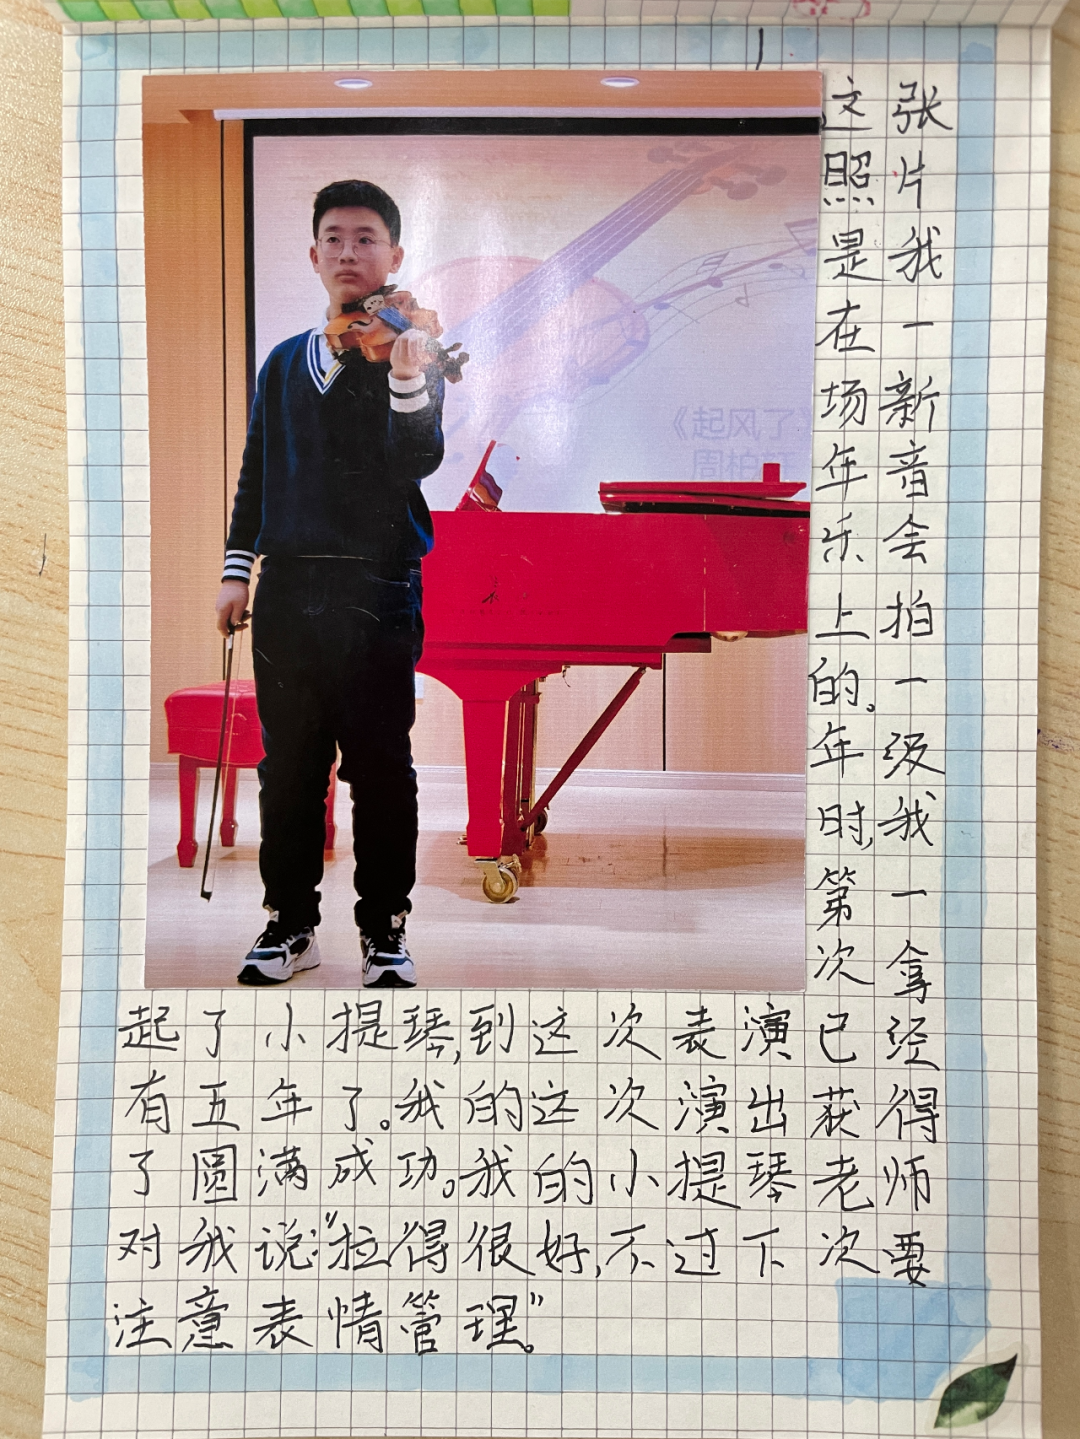 《起风了》
周柏轩
这张
照片
是我
在一
场新
年音
乐会
上拍
的。一
年级
时,我
第一
次拿
起了小提琴,到这次表演已经
有五年了。我的这次演出获得
了圆满成功。我的小提琴老师
对我说:“拉得很好,不过下次要
注意表情管理。”